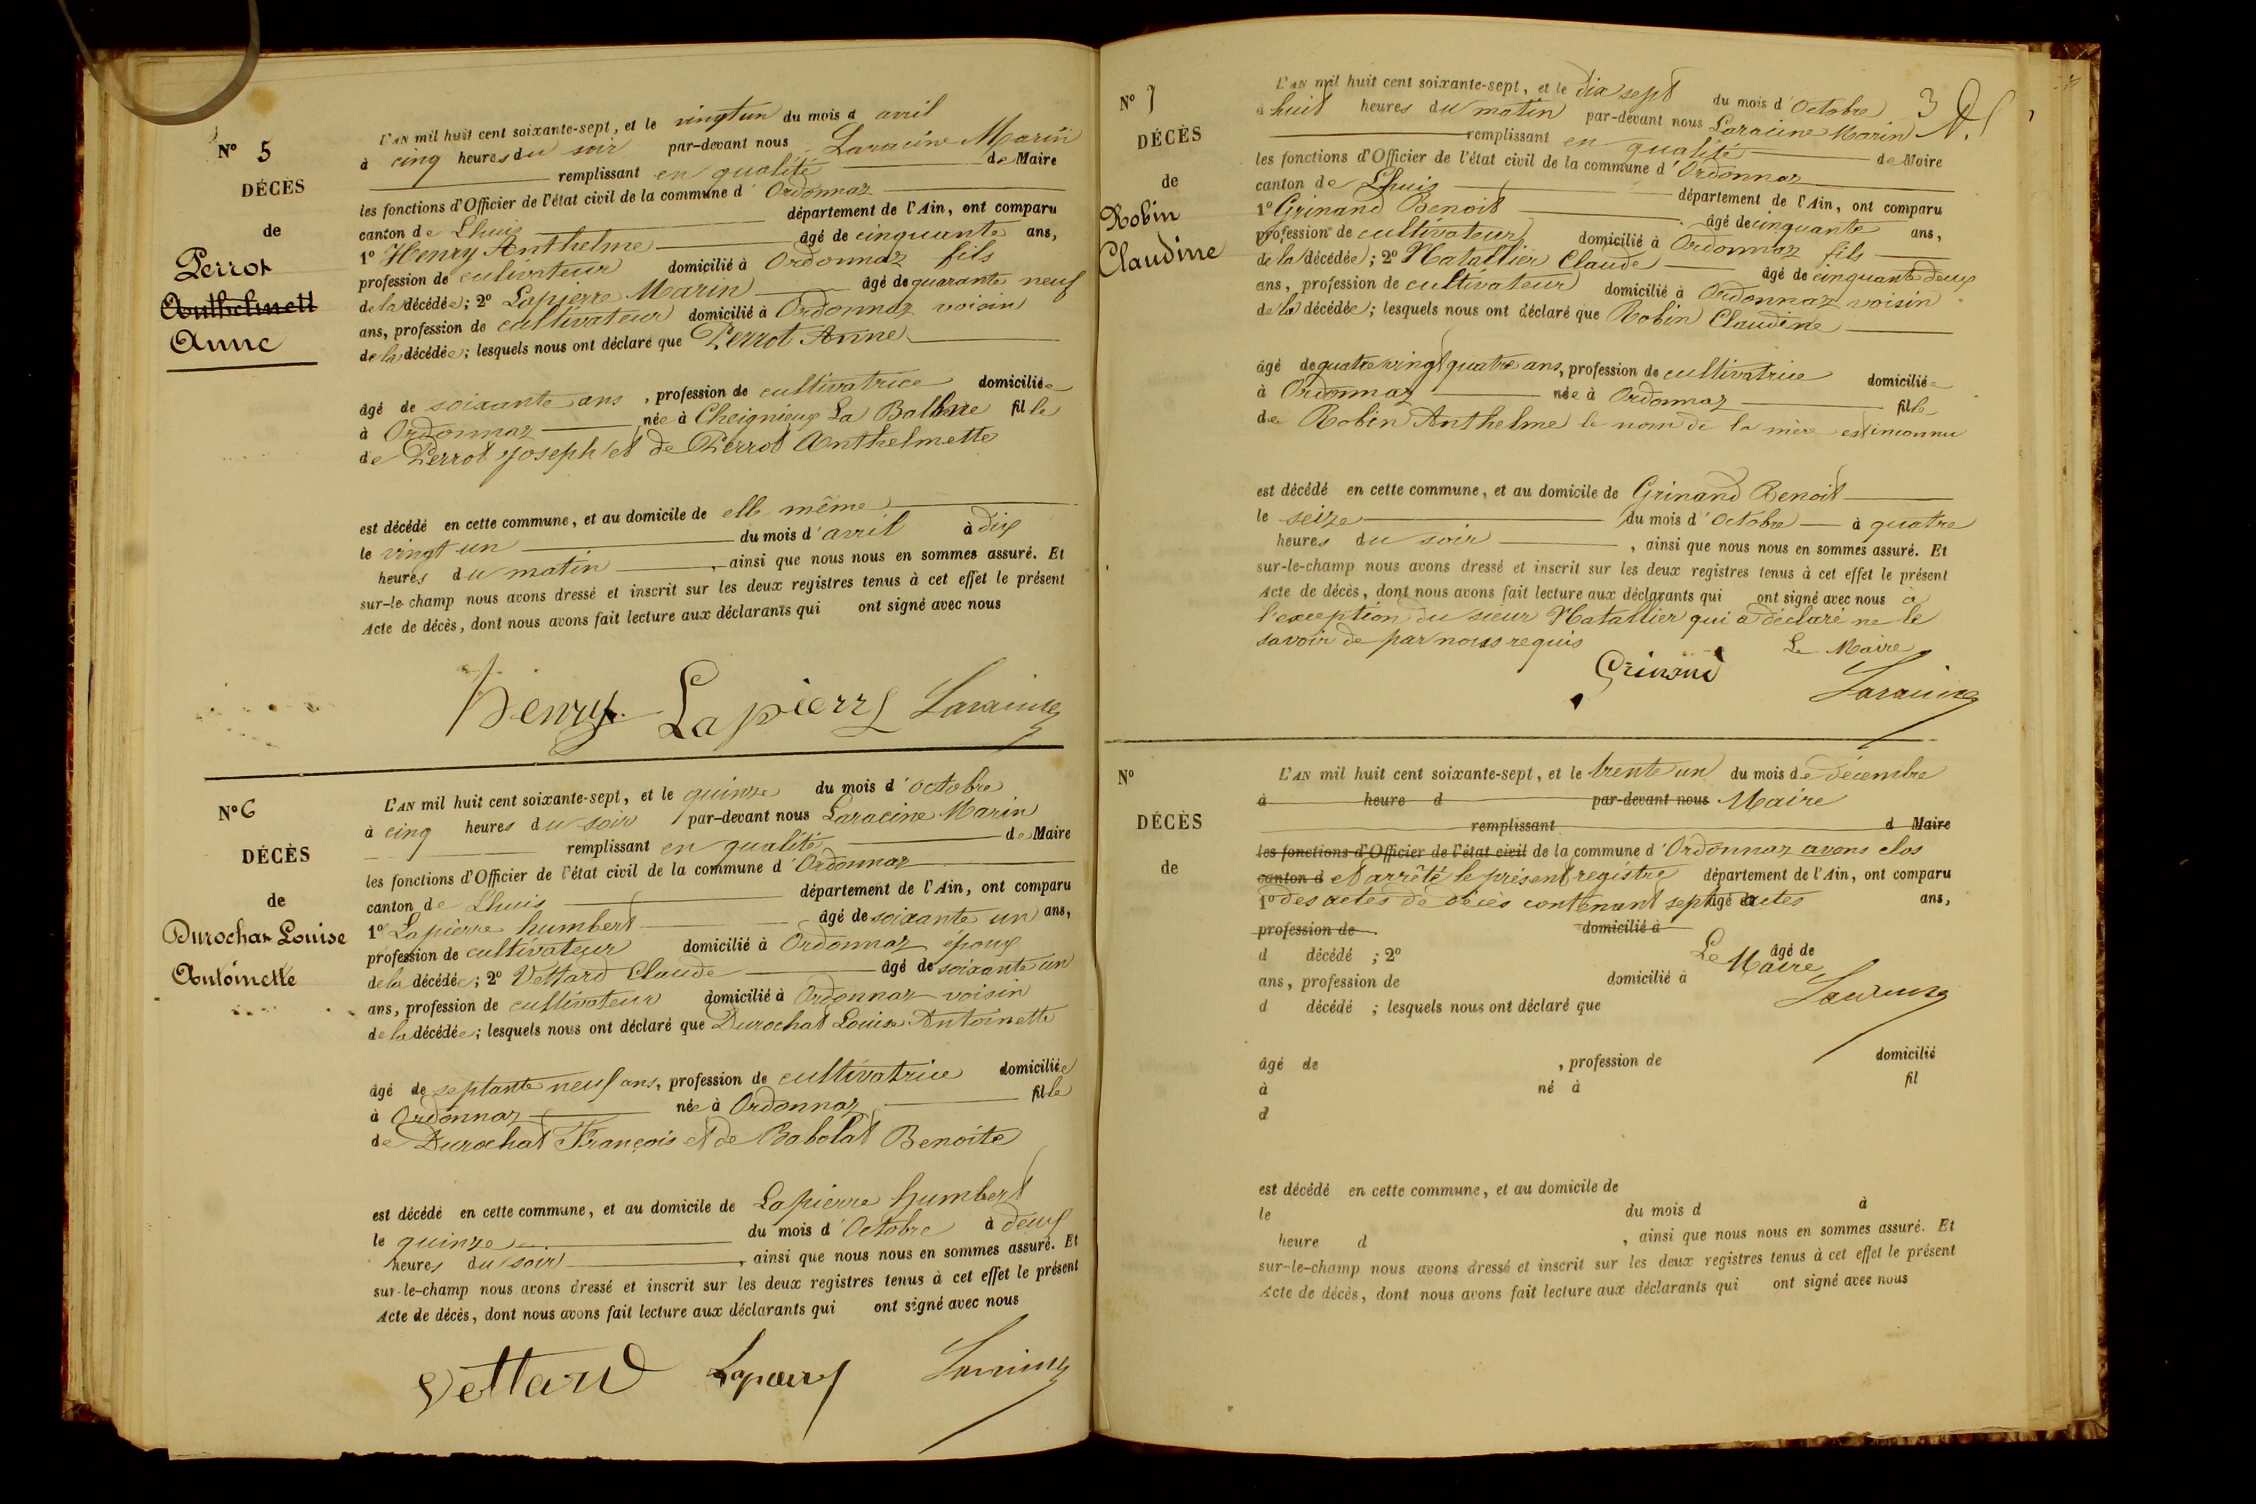 N° 5
DÉCÈS
de
Perrot
Anthelmett
Anne
L'AN mil huit cent soixante-sept, et le vingt un du mois d avril
à cinq heures du soir par-devant nous Laracine Marin
remplissant en qualité de Maire
les fonctions d'Officier de l'état civil de la commune d' Ordonnaz
canton de Lhuis département de l'Ain, ont comparu
1° Henry Anthelme âgé de cinquante ans,
profession de cultivateur domicilié à Ordonnaz fils
de la décédée ; 2° Lapierre Marin âgé de quarante neuf
ans, profession de cultivateur domicilié à Ordonnaz voisin
de la décédée ; lesquels nous ont déclaré que Perrot Anne
âgé de soixante ans , profession de cultivatrice domiciliée
à Ordonnaz née à Cheignieux La Balme fille
de Perrot Joseph et de Perrot Anthelmette
est décédé en cette commune, et au domicile de elle même
le vingt un du mois d' avril à dix
heures du matin , ainsi que nous nous en sommes assuré. Et
sur-le-champ nous avons dressé et inscrit sur les deux registres tenus à cet effet le présent
Acte de décès, dont nous avons fait lecture aux déclarants qui ont signé avec nous
Henry Lapierre Laracine
N° 6
DÉCÈS
de
Durochat Louise
Antoinette
L'AN mil huit cent soixante-sept, et le quinze du mois d' octobre
à cinq heures du soir par-devant nous Laracine Marin
remplissant en qualité de Maire
les fonctions d'Officier de l'état civil de la commune d' Ordonnaz
canton de Lhuis département de l'Ain, ont comparu
1° Lapierre humbert âgé de soixante un ans,
profession de cultivateur domicilié à Ordonnaz époux
de la décédée ; 2° Vettard Claude âgé de soixante un
ans, profession de cultivateur domicilié à Ordonnaz voisin
de la décédée ; lesquels nous ont déclaré que Durochat Louise Antoinette
âgé de septante neuf ans, profession de cultivatrice domiciliée
à Ordonnaz née à Ordonnaz fille
de Durochat François et de Babolat Benoite
est décédé en cette commune, et au domicile de Lapierre humbert
le quinze du mois d' Octobre à deux
heures du soir , ainsi que nous nous en sommes assuré. Et
sur-le-champ nous avons dressé et inscrit sur les deux registres tenus à cet effet le présent
Acte de décès, dont nous avons fait lecture aux déclarants qui ont signé avec nous
Vettard Laracine
3
N° 7
DÉCÈS
de
Robin
Claudine
L'AN mil huit cent soixante-sept, et le dix sept du mois d' Octobre
à huit heures du matin par-devant nous Laracine Marin
remplissant en qualité de Maire
les fonctions d'Officier de l'état civil de la commune d' Ordonnaz
canton de Lhuis département de l'Ain, ont comparu
1° Grinand Benoit âgé de cinquante ans,
profession de cultivateur domicilié à Ordonnaz fils
de la décédée ; 2° Natallier Claude âgé de cinquante deux
ans, profession de cultivateur domicilié à Ordonnaz voisin
de la décédée ; lesquels nous ont déclaré que Robin Claudine
âgé de quatre vingt quatre ans, profession de cultivatrice domiciliée
à Ordonnaz née à Ordonnaz fille
de Robin Anthelme le nom de la mère est inconnu
est décédé en cette commune, et au domicile de Grinand Benoit
le seize du mois d' Octobre à quatre
heures du soir , ainsi que nous nous en sommes assuré. Et
sur-le-champ nous avons dressé et inscrit sur les deux registres tenus à cet effet le présent
Acte de décès, dont nous avons fait lecture aux déclarants qui ont signé avec nous à
l'exception du sieur Natallier qui a déclaré ne le
savoir de par nous requis Le Maire
Grinand Laracine
N°
DÉCÈS
de
L'AN mil huit cent soixante-sept, et le trente un du mois de décembre
à heure d par-devant nous Maire
remplissant d Maire
les fonctions d'Officier de l'état civil de la commune d' Ordonnaz avons clos
canton d et arrêté le présent registre département de l'Ain, ont comparu
1° des actes de décès contenant sept âgé de actes ans,
profession de domicilié à
d décédé ; 2° Le Maire âgé de
ans, profession de domicilié à
d décédé ; lesquels nous ont déclaré que Laracine
âgé de , profession de domicilié
à né à fil
d
est décédé en cette commune, et au domicile de
le du mois d à
heure d , ainsi que nous nous en sommes assuré. Et
sur-le-champ nous avons dressé et inscrit sur les deux registres tenus à cet effet le présent
Acte de décès, dont nous avons fait lecture aux déclarants qui ont signé avec nous